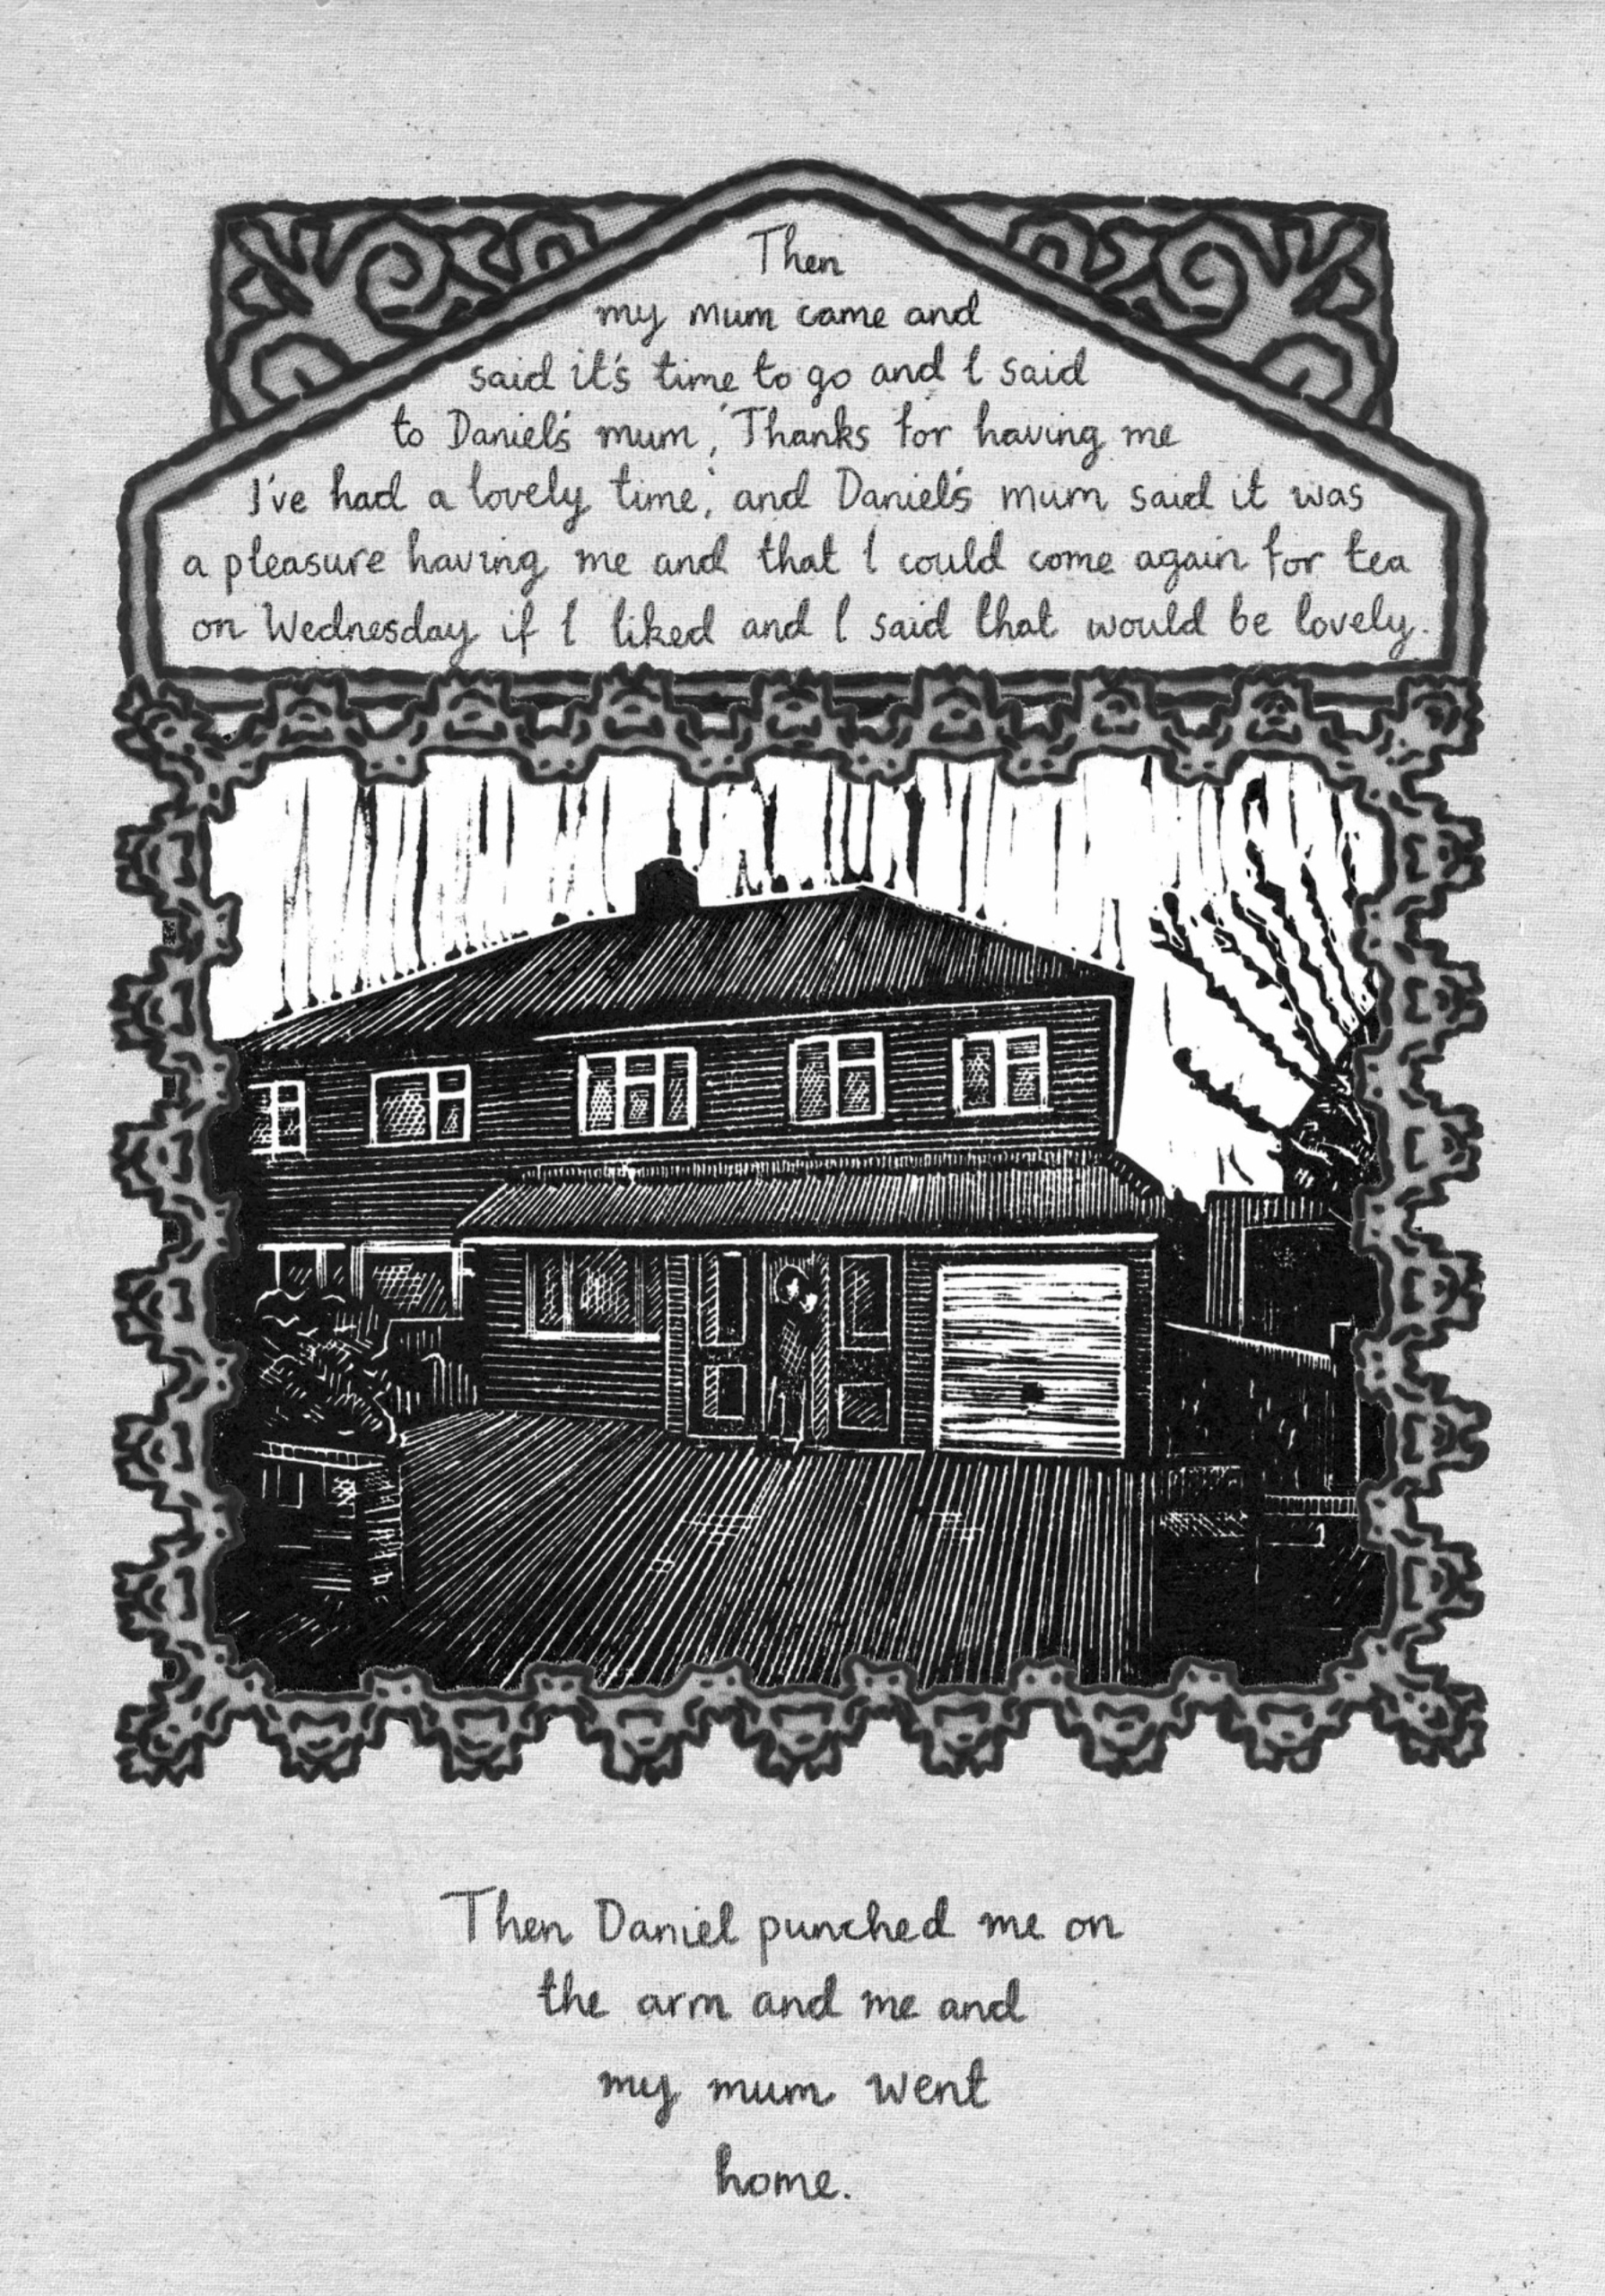 Then
my mum came and
said it's time to go and I said
to Daniel's mum, 'Thanks for having me
I've had a lovely time,' and Daniel's mum said it was
a pleasure having me and that I could come again for tea
on Wednesday if I liked and I said that would be lovely.
Then Daniel punched me on
the arm and me and
my mum went
home.